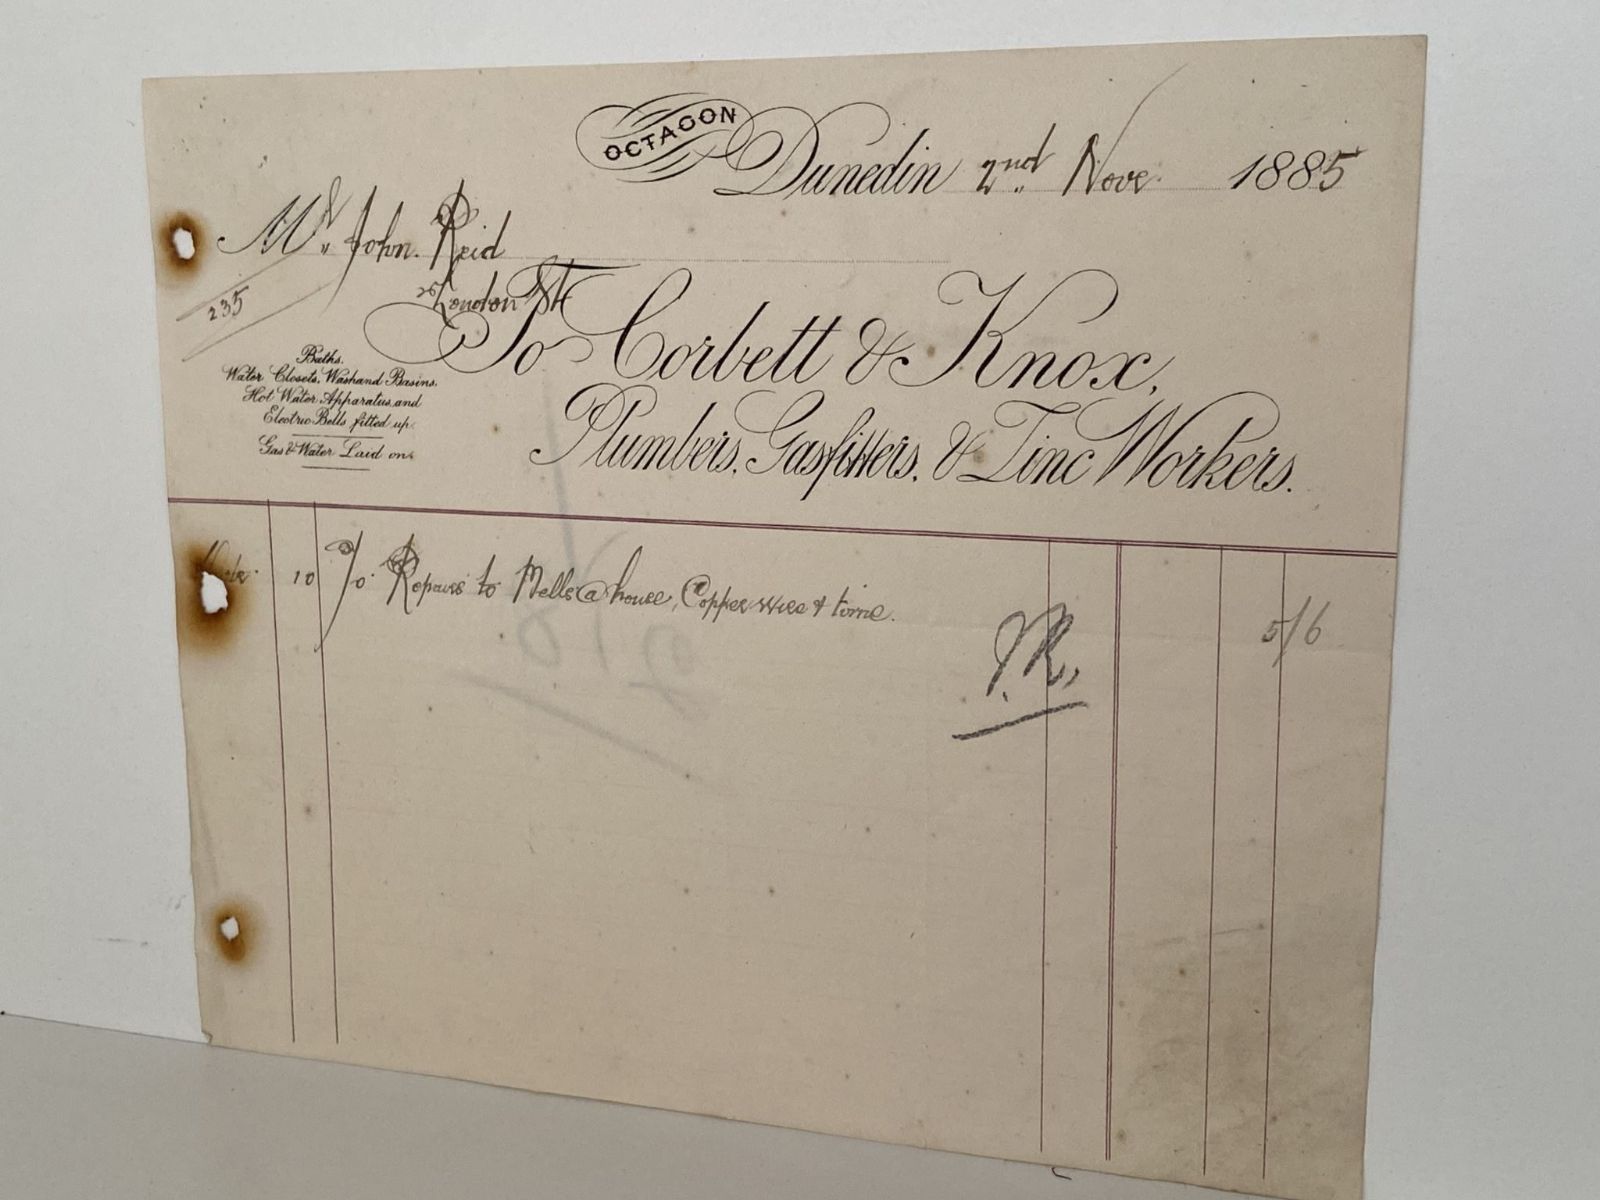 OCTAGON
Dunedin 2nd Nove. 1885
Mr. John Reid
London St
235
To Corbett & Knox,
Plumbers, Gasfitters, & Zinc Workers.
Baths,
Water Closets, Washand Basins,
Hot Water Apparatus and
Electric Bells fitted up.
Gas & Water Laid on.
10 To Repairs to Bells @ house, Copper wire & time. 5/6
J.R.